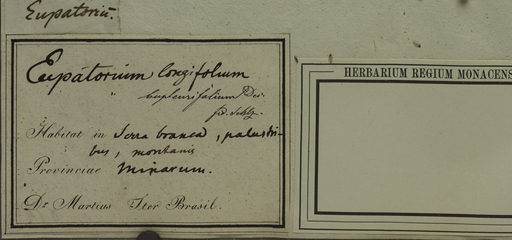 Eupatoriū.
Eupatorium longifolium
" bupleurifolium Dec.
fid. Schtz.
Habitat in Serra branca, palustri-
bus, montanis
Provinciae Minarum.
Dr Martius Iter Brasil.
HERBARIUM REGIUM MONACENS